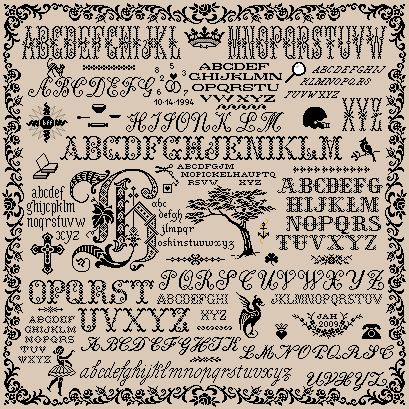 ABCDEFGHIJKL MNOPQRSTUVW
ABCDEFG
5 2
6 3
10-14-1994
ABCDEF
GHIJKLMN
OPQRSTU
VWXYZ
ABCDEFGHIJ
KLMNOPQRS
TUVWXYZ
HIJONKLM
XYZ
ABCDEFGHJENIKLM
abcdef
ghijcpklm
noqrstuvw
xyz
H
ABCDEFGJM
NOPICKELHAUPTQ
RSVW XYZ
abc
defgh
ijmpqr
oshinstuvwxyz
ABCDEFG
HIJKLM
NOPQRS
TUVXYZ
OPQRST
UVXYZ
PQRSCUVWXYZ
ABCDEFGHI JKLMNOPQRSTUV
XYZ
ABCDEF
GHIJKLM
NOPQRS
TUV
WXYZ
JAH
2009
ABCDEFGHIK
LMNOPQRSC
abcdefghijkl mnopqrstuvwxyz
UVXYZ